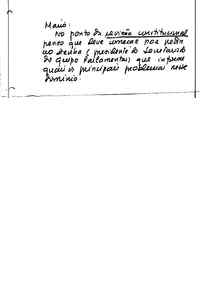 Mário:
No ponto da revisão constitucional
penso que deve começar por pedir
ao Senhor presidente do Secretariado
do Grupo Parlamentar, que informe
quais os principais problemas nesse
domínio.